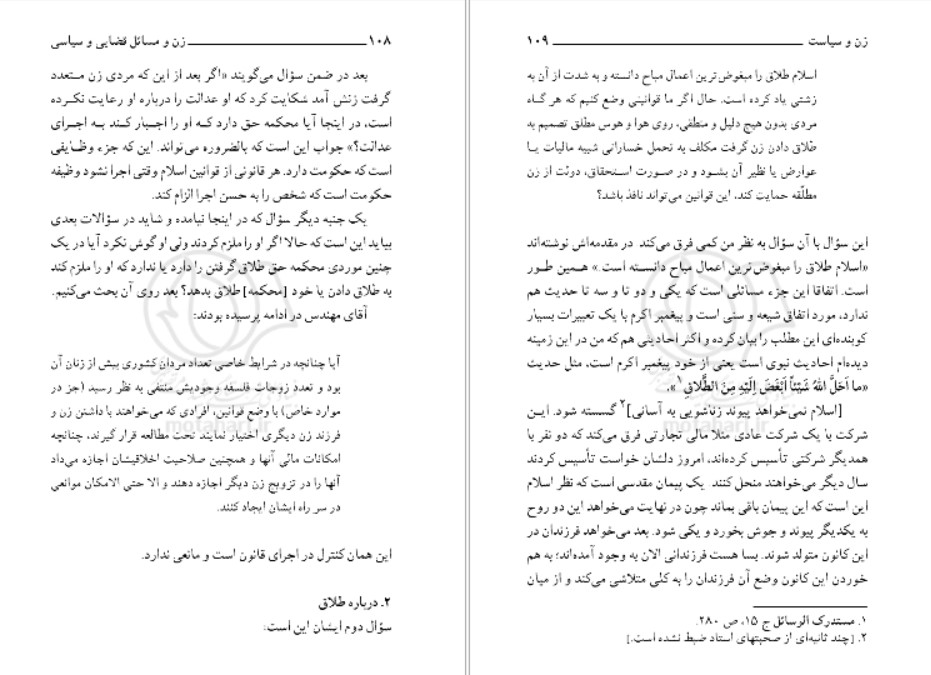 ۱۰۸ زن و مسائل قضایی و سیاسی
بعد در ضمن سؤال می‌گویند «اگر بعد از این که مردی زن متعدد
گرفت زنش آمد شکایت کرد که او عدالت را درباره او رعایت نکرده
است، در اینجا آیا محکمه حق دارد که او را اجبار کند به اجرای
عدالت؟» جواب این است که بالضروره می‌تواند. این که جزء وظایفی
است که حکومت دارد. هر قانونی از قوانین اسلام وقتی اجرا نشود وظیفه
حکومت است که شخص را به حسن اجرا الزام کند.
یک جنبه دیگر سؤال که در اینجا نیامده و شاید در سؤالات بعدی
بیاید این است که حالا اگر او را ملزم کردند ولی او گوش نکرد آیا در یک
چنین موردی محکمه حق طلاق گرفتن را دارد یا ندارد که او را ملزم کند
به طلاق دادن یا خود [محکمه] طلاق بدهد؟ بعد روی آن بحث می‌کنیم.
آقای مهندس در ادامه پرسیده بودند:
آیا چنانچه در شرایط خاصی تعداد مردان کشوری بیش از زنان آن
بود و تعدد زوجات فلسفه وجودیش منتفی به نظر رسید (جز در
موارد خاص) با وضع قوانین، افرادی که می‌خواهند با داشتن زن و
فرزند زن دیگری اختیار نمایند تحت مطالعه قرار گیرند، چنانچه
امکانات مالی آنها و همچنین صلاحیت اخلاقیشان اجازه می‌داد
آنها را در تزویج زن دیگر اجازه دهند و الا حتی الامکان موانعی
در سر راه ایشان ایجاد کنند.
این همان کنترل در اجرای قانون است و مانعی ندارد.
۲. درباره طلاق
سؤال دوم ایشان این است:
زن و سیاست ۱۰۹
اسلام طلاق را مبغوض‌ترین اعمال مباح دانسته و به شدت از آن به
زشتی یاد کرده است. حال اگر ما قوانینی وضع کنیم که هر گاه
مردی بدون هیچ دلیل و منطقی، روی هوا و هوس مطلق تصمیم به
طلاق دادن زن گرفت مکلف به تحمل خساراتی شبیه مالیات یا
عوارض یا نظیر آن بشود و در صورت استحقاق، دولت از زن
مطلّقه حمایت کند، این قوانین می‌تواند نافذ باشد؟
این سؤال با آن سؤال به نظر من کمی فرق می‌کند. در مقدمه‌اش نوشته‌اند
«اسلام طلاق را مبغوض‌ترین اعمال مباح دانسته است.» همین طور
است. اتفاقا این جزء مسائلی است که یکی و دو تا و سه تا حدیث هم
ندارد، مورد اتفاق شیعه و سنی است و پیغمبر اکرم با یک تعبیرات بسیار
کوبنده‌ای این مطلب را بیان کرده و اکثر احادیثی هم که من در این زمینه
دیده‌ام احادیث نبوی است یعنی از خود پیغمبر اکرم است، مثل حدیث
«ما اَحَلَّ اللهُ شَیْئاً اَبْغَضَ اِلَیْهِ مِنَ الطَّلاقِ۱».
[اسلام نمی‌خواهد پیوند زناشویی به آسانی]۲ گسسته شود. این
شرکت با یک شرکت عادی مثلا مالی تجارتی فرق می‌کند که دو نفر با
همدیگر شرکتی تأسیس کرده‌اند، امروز دلشان خواست تأسیس کردند
سال دیگر می‌خواهند منحل کنند. یک پیمان مقدسی است که نظر اسلام
این است که این پیمان باقی بماند چون در نهایت می‌خواهد این دو روح
به یکدیگر پیوند و جوش بخورد و یکی شود. بعد می‌خواهد فرزندان در
این کانون متولد شوند. بسا هست فرزندانی الان به وجود آمده‌اند؛ به هم
خوردن این کانون وضع آن فرزندان را به کلی متلاشی می‌کند و از میان
۱. مستدرک الوسائل ج ۱۵، ص ۲۸۰.
۲. [چند ثانیه‌ای از صحبتهای استاد ضبط نشده است.]
motahari.ir
motahari.ir